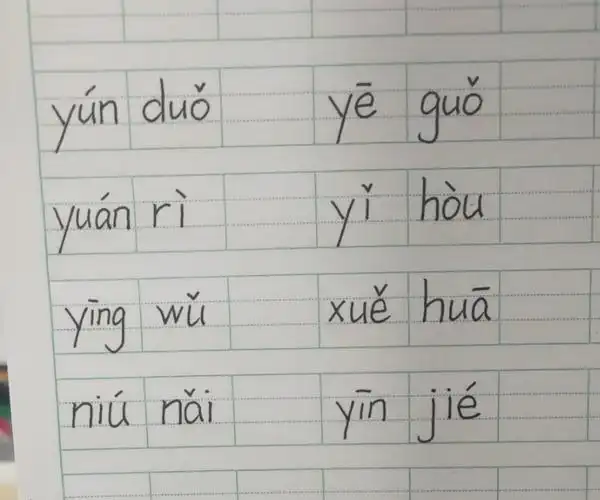 yún duǒ yē guǒ
yuán rì yǐ hòu
yīng wǔ xuě huā
niú nǎi yīn jié